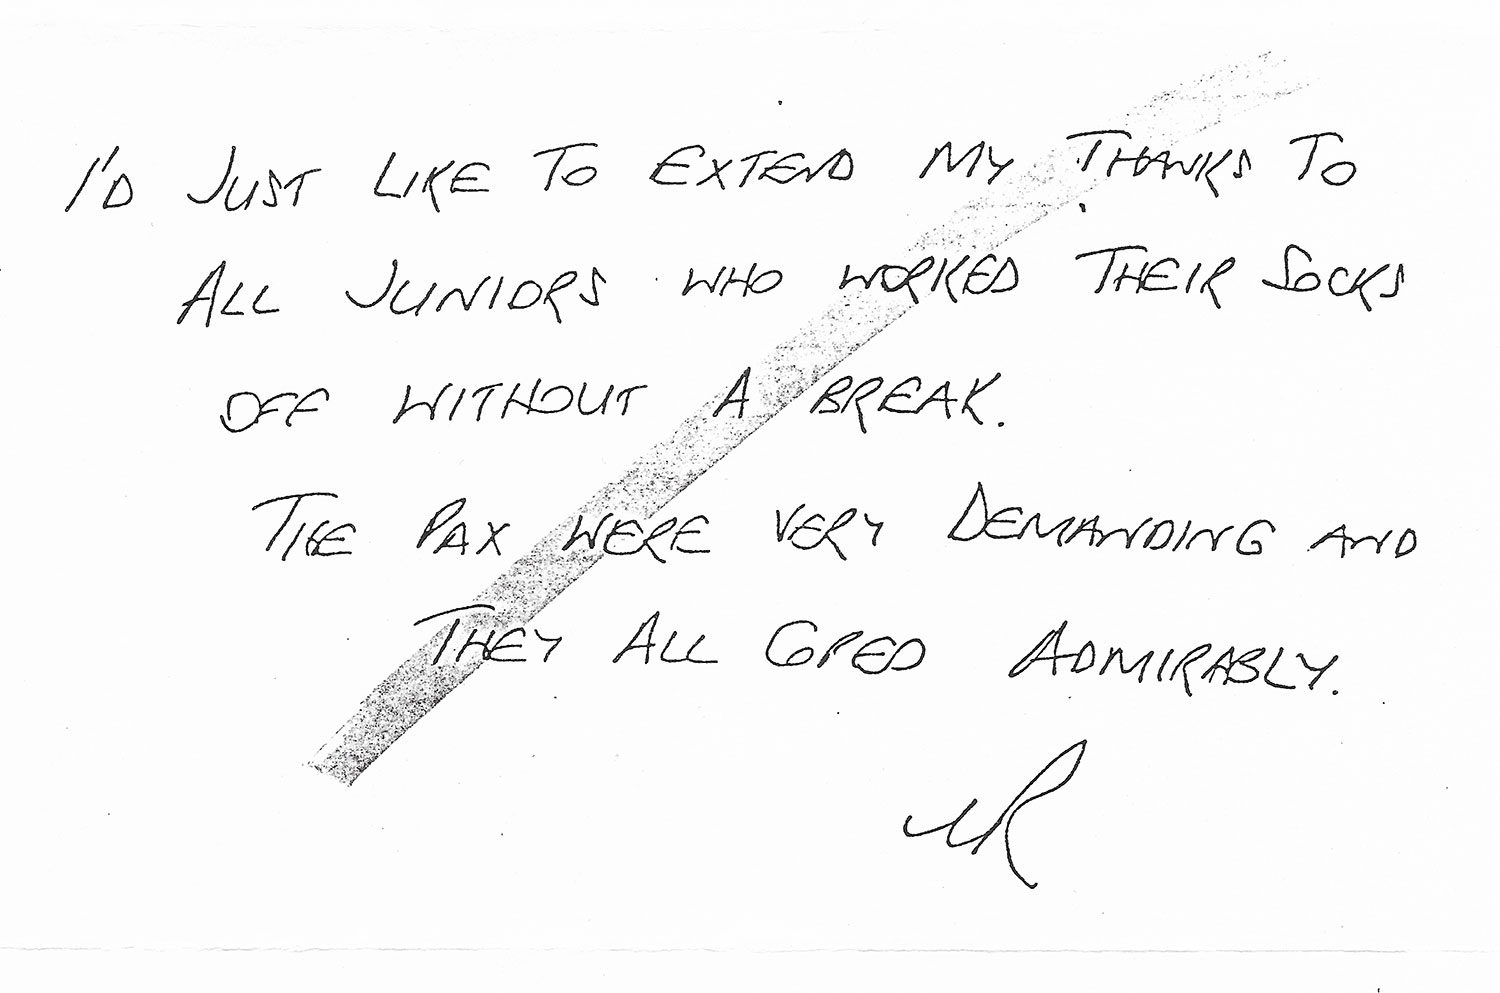 I'D JUST LIKE TO EXTEND MY THANKS TO
ALL JUNIORS WHO WORKED THEIR SOCKS
OFF WITHOUT A BREAK.
THE PAX WERE VERY DEMANDING AND
THEY ALL COPED ADMIRABLY.